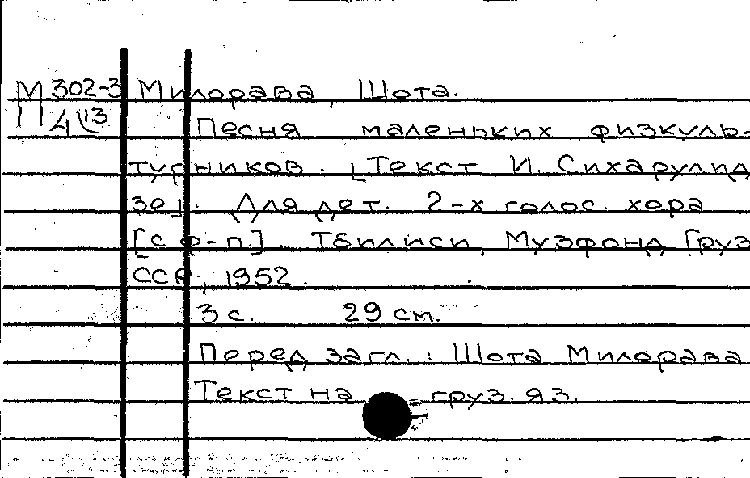 М 302-3 Милорава, Шота.
Песня маленьких физкуль-
турников. [Текст И. Сихарулид
зе]. Для дет. 2-х голос. хора
[с ф-п.] Тбилиси, Музфонд Груз
ССР, 1952.
3 с. 29 см.
Перед загл.: Шота Милорава
Текст на груз. яз.